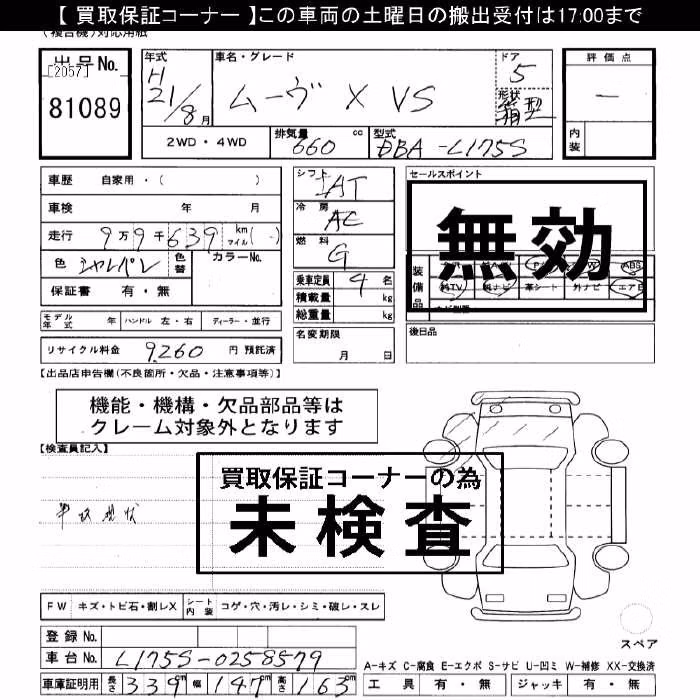 【 買取保証コーナー 】この車両の土曜日の搬出受付は17:00まで
(複合機)対応用紙
出品No.
[2057]
81089
年式
H
21/8月
車名・グレード
ムーヴ X VS
ドア
5
形状
箱型
評価点
—
内装
2WD・4WD
排気量
660 cc
型式
DBA-L175S
車歴 自家用・( )
車検 年 月
走行 9万9千639 km マイル( )
色 シャンパン
色替
カラーNo.
保証書 有・無
モデル年式 年 ハンドル 左・右 ディーラー・並行
リサイクル料金 9,260 円 預託済
シフト
IAT
冷房
AC
燃料
G
乗車定員 4 名
積載量 kg
総重量 kg
名変期限
月 日
セールスポイント
無効
装備品
ABS
純TV 純ナビ 革シート 外ナビ エアB
後日品
【出品店申告欄(不良箇所・欠品・注意事項等)】
機能・機構・欠品部品等は
クレーム対象外となります
【検査員記入】
買取保証コーナーの為
未検査
現状
FW キズ・トビ石・割レX
シート内装 コゲ・穴・汚レ・シミ・破レ・スレ
登録No.
車台No. L175S-0258579
車庫証明用 長さ 339cm 幅 147cm 高さ 163cm
スペア
A-キズ C-腐食 E-エクボ S-サビ U-凹ミ W-補修 XX-交換済
工具 有・無 ジャッキ 有・無